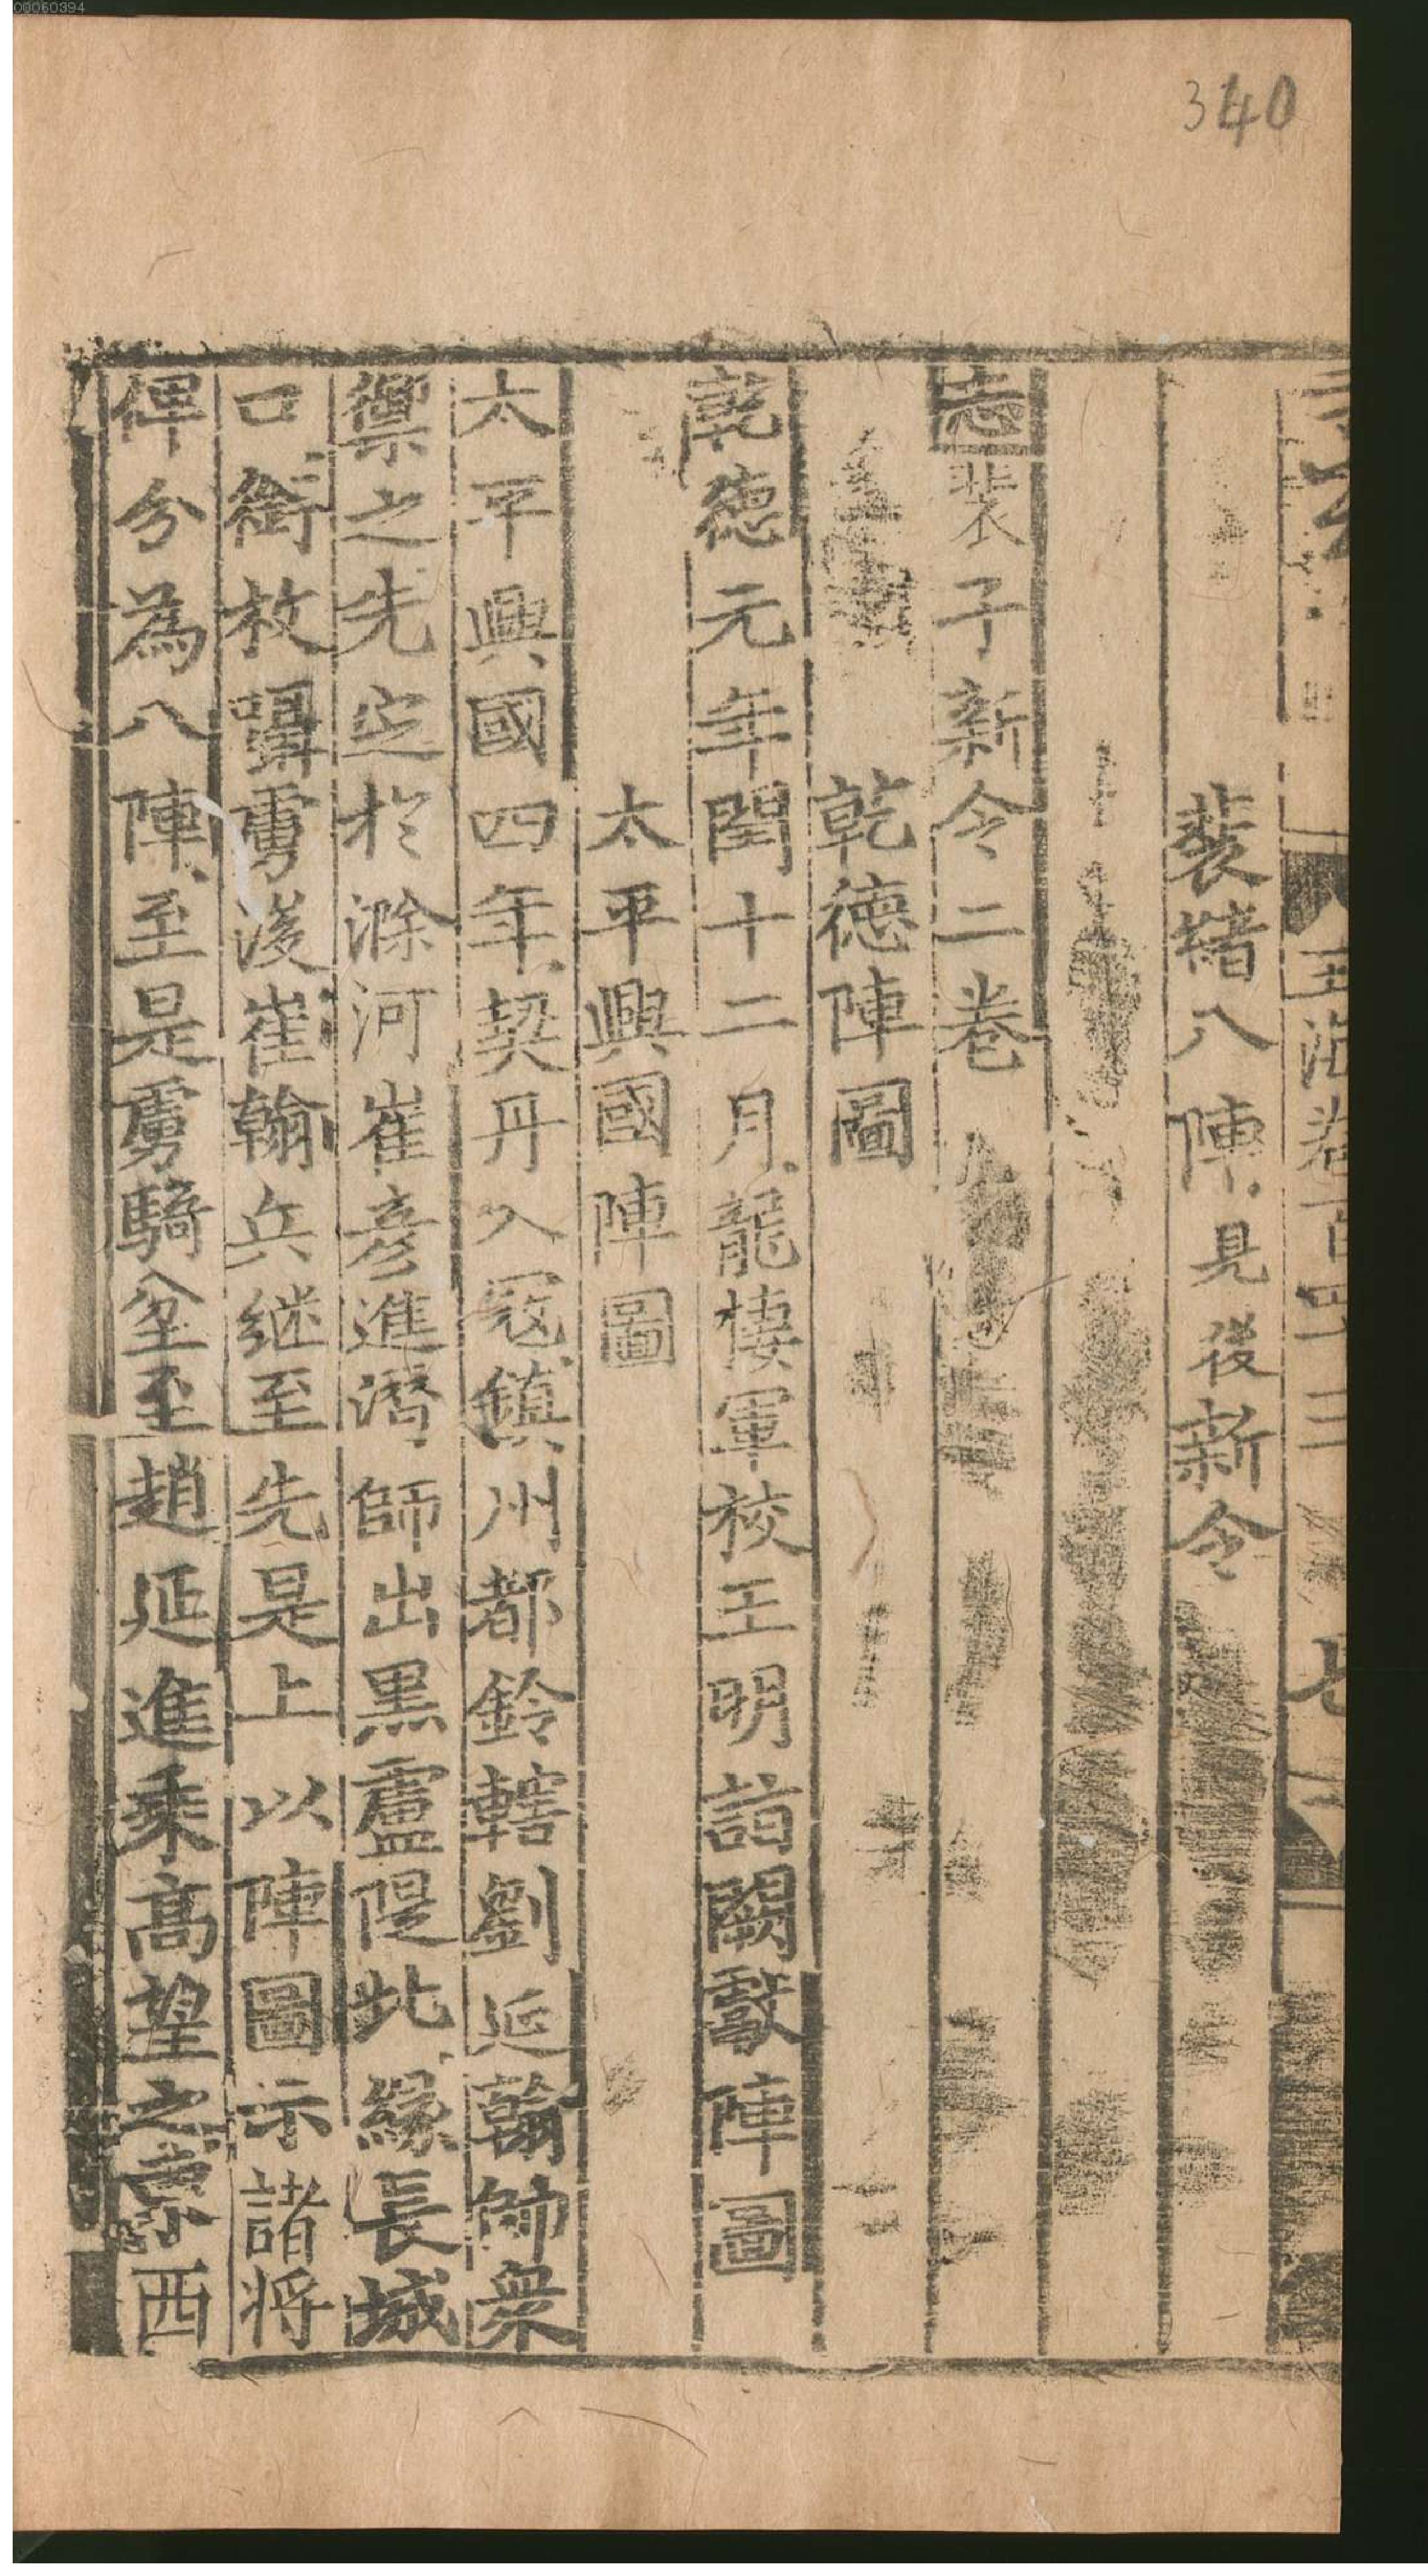 00060394
340
玉海卷百四十三
裴緒八陣見後新令
志裴子新令二卷
乾德陣圖
乾德元年閏十二月龍棲軍校王明詣闕獻陣圖
太平興國陣圖
太平興國四年契丹入冦鎮州都鈐轄劉延翰帥衆
禦之先㝎於滁河崔彦進潛師出黒盧隄北縁長城
口銜枚躡虜後崔翰兵继至先是上以陣圖示諸将
俾分為八陣至是虜騎坌至趙延進乘高望之東西